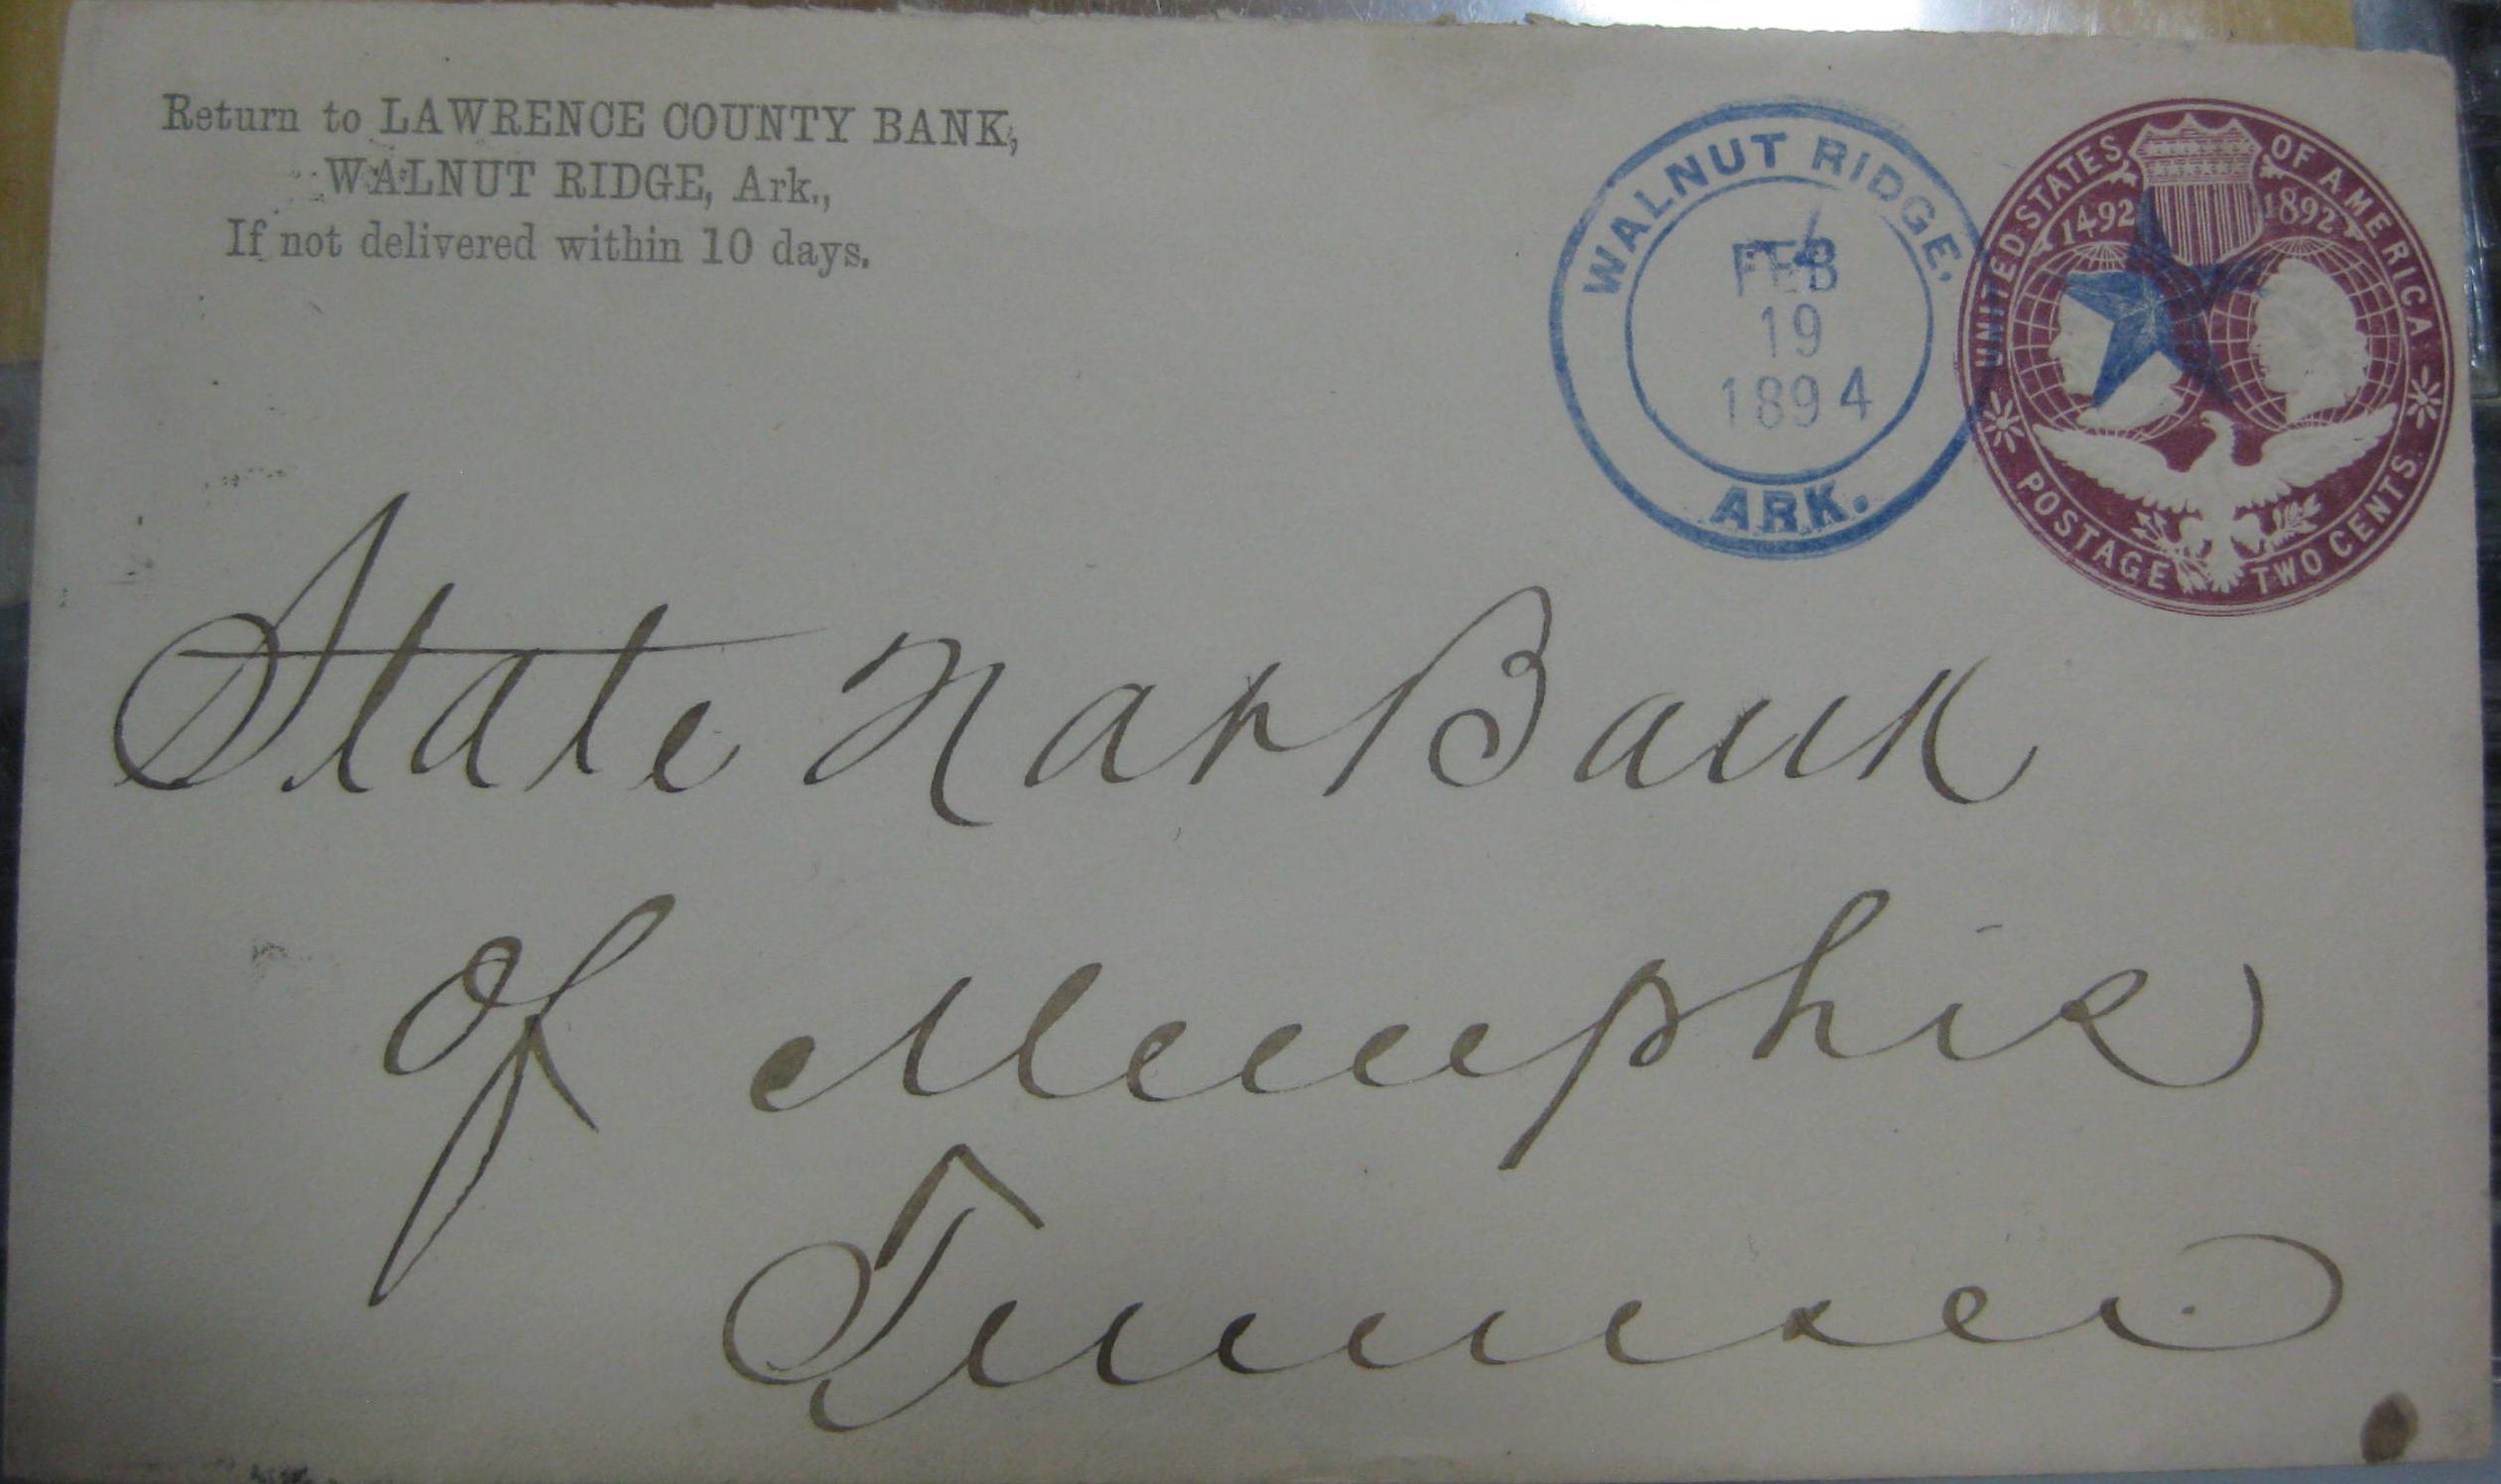 Return to LAWRENCE COUNTY BANK,
WALNUT RIDGE, Ark.,
If not delivered within 10 days.
WALNUT RIDGE,
FEB
19
1894
ARK.
UNITED STATES OF AMERICA
1492 1892
POSTAGE TWO CENTS.
State Nat Bank
of Memphis
Tennessee